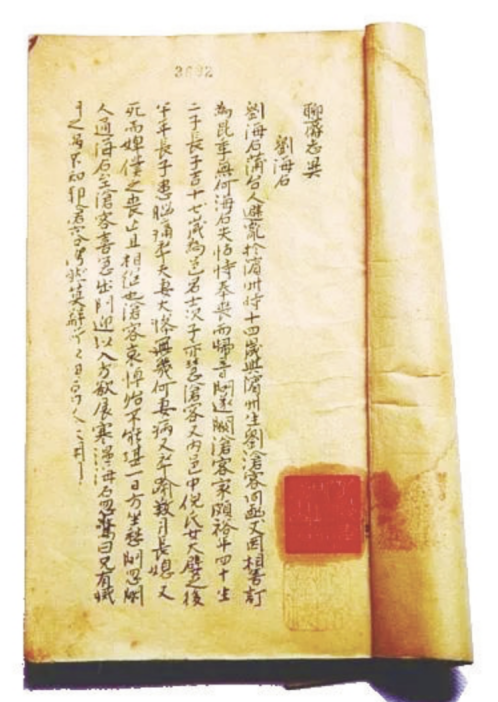 聊齋志異
劉海石
劉海石蒲台人避亂於濱州時十四歲與濱州生劉滄客同函丈因相善訂
為昆季無何海石失怙恃奉喪而歸音問遂闕滄客家頗裕年四十生
二子長子吉十七歲為邑名士次子亦慧滄客又內邑中倪氏女大嬖之後
半年長子患腦痛卒夫妻大慘無幾何妻病又卒踰數月長媳又
死而婢僕之喪亡且相繼也滄客哀悼殆不能堪一日方坐愁間忽閽
人通海石至滄客喜急出門迎以入方欲展寒溫海石忽驚曰兄有滅
門之禍不知耶滄客愕然莫解